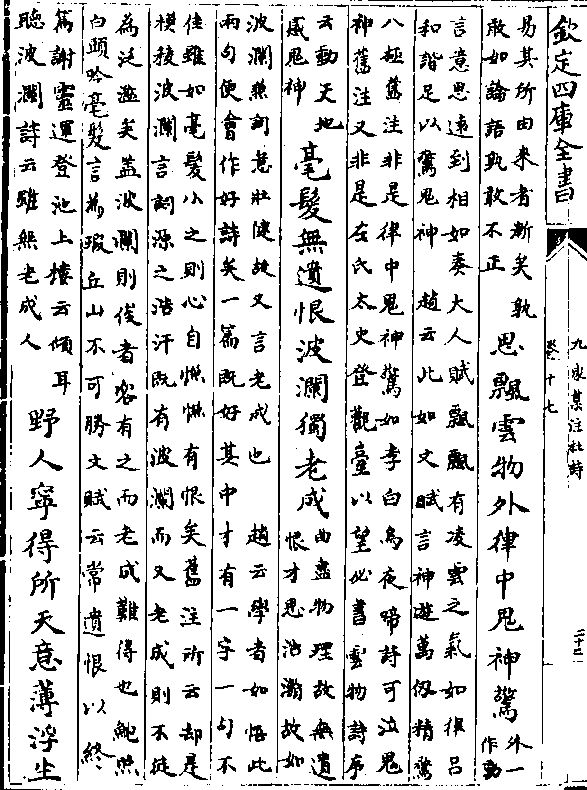 欽定四庫全書
九家集注杜詩
卷十七
二十二
易其所由來者漸矣 孰
敢如論語孰敢不正
思飄雲物外律中鬼神驚
外一
作動
言意思遠到相如奏大人賦飄飄有凌雲之氣如律呂
和諧足以驚鬼神 趙云此如文賦言神遊萬仭精騖
八極舊注非是律中鬼神驚如李白烏夜啼詩可泣鬼
神舊注又非是左氏太史登觀臺以望必書雲物詩序
云動天地
感鬼神
毫髮無遺恨波瀾獨老成
曲盡物理故無遺
恨才思浩瀚故如
波瀾兼詞意壯健故又言老成也 趙云學者如悟此
兩句便會作好詩矣一篇既好其中才有一字一句不
佳雖如毫髮小之則心自慊慊有恨矣舊注所云却是
模稜波瀾言詞源之浩汗既有波瀾而又老成則不徒
為泛濫矣葢波瀾則俊者容有之而老成難得也鮑照
白頭吟毫髮言為瑕丘山不可勝文賦云常遺恨以終
篇謝靈運登池上樓云傾耳
聽波瀾詩云雖無老成人
野人寧得所天意薄浮生